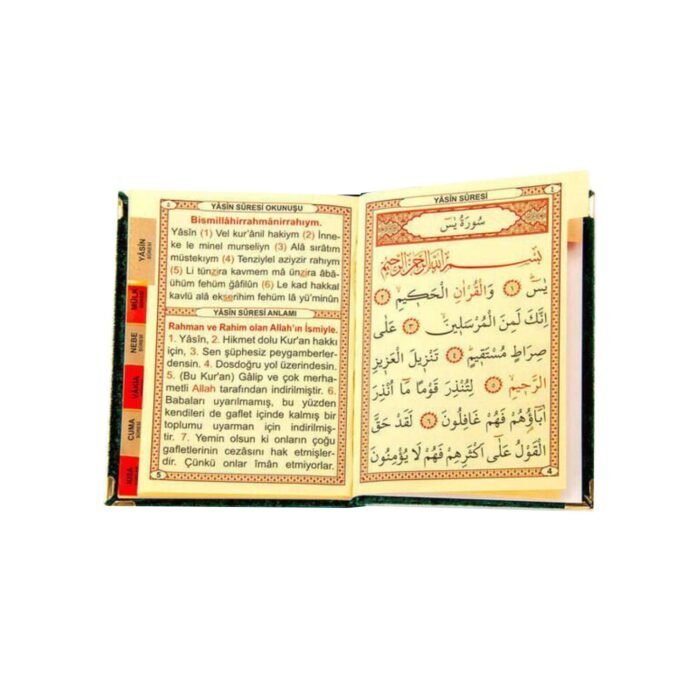 YÂSİN SÛRESİ
MÜLK
SÛRESİ
NEBE
SÛRESİ
VAKIA
CUMA
SÛRESİ
KISA
4
YÂSİN SÛRESİ OKUNUŞU
Bismillâhirrahmânirrahıym.
Yâsîn (1) Vel kur'ânil hakiym (2) İnne-
ke le minel murseliyn (3) Alâ sırâtım
müstekıym (4) Tenziylel aziyzir rahıym
(5) Li tünzira kavmem mâ ünzira âbâ-
ühüm fehüm gâfilûn (6) Le kad hakkal
kavlü alâ ekserihim fehüm lâ yü'minûn
YÂSİN SÛRESİ ANLAMI
Rahman ve Rahim olan Allah'ın İsmiyle.
1. Yâsîn, 2. Hikmet dolu Kur'an hakkı
için, 3. Sen şüphesiz peygamberler-
densin. 4. Dosdoğru yol üzerindesin.
5. (Bu Kur'an) Gâlip ve çok merha-
metli Allah tarafından indirilmiştir. 6.
Babaları uyarılmamış, bu yüzden
kendileri de gaflet içinde kalmış bir
toplumu uyarman için indirilmiş-
tir. 7. Yemin olsun ki onların çoğu
gafletlerinin cezasını hak etmişler-
dir. Çünkü onlar îmân etmiyorlar.
5
YÂSİN SÛRESİ
1
سُورَةُ يٰسٓ
بِسْمِ اللّٰهِ الرَّحْمٰنِ الرَّحِيمِ
يٰسٓ ﴿١﴾ وَالْقُرْاٰنِ الْحَكِيمِ ﴿٢﴾
اِنَّكَ لَمِنَ الْمُرْسَلِينَ ﴿٣﴾ عَلٰى
صِرَاطٍ مُسْتَقِيمٍ ﴿٤﴾ تَنْزِيلَ الْعَزِيزِ
الرَّحِيمِ ﴿٥﴾ لِتُنْذِرَ قَوْمًا مَٓا اُنْذِرَ
اٰبَٓاؤُهُمْ فَهُمْ غَافِلُونَ ﴿٦﴾ لَقَدْ حَقَّ
الْقَوْلُ عَلٰٓى اَكْثَرِهِمْ فَهُمْ لَا يُؤْمِنُونَ
4